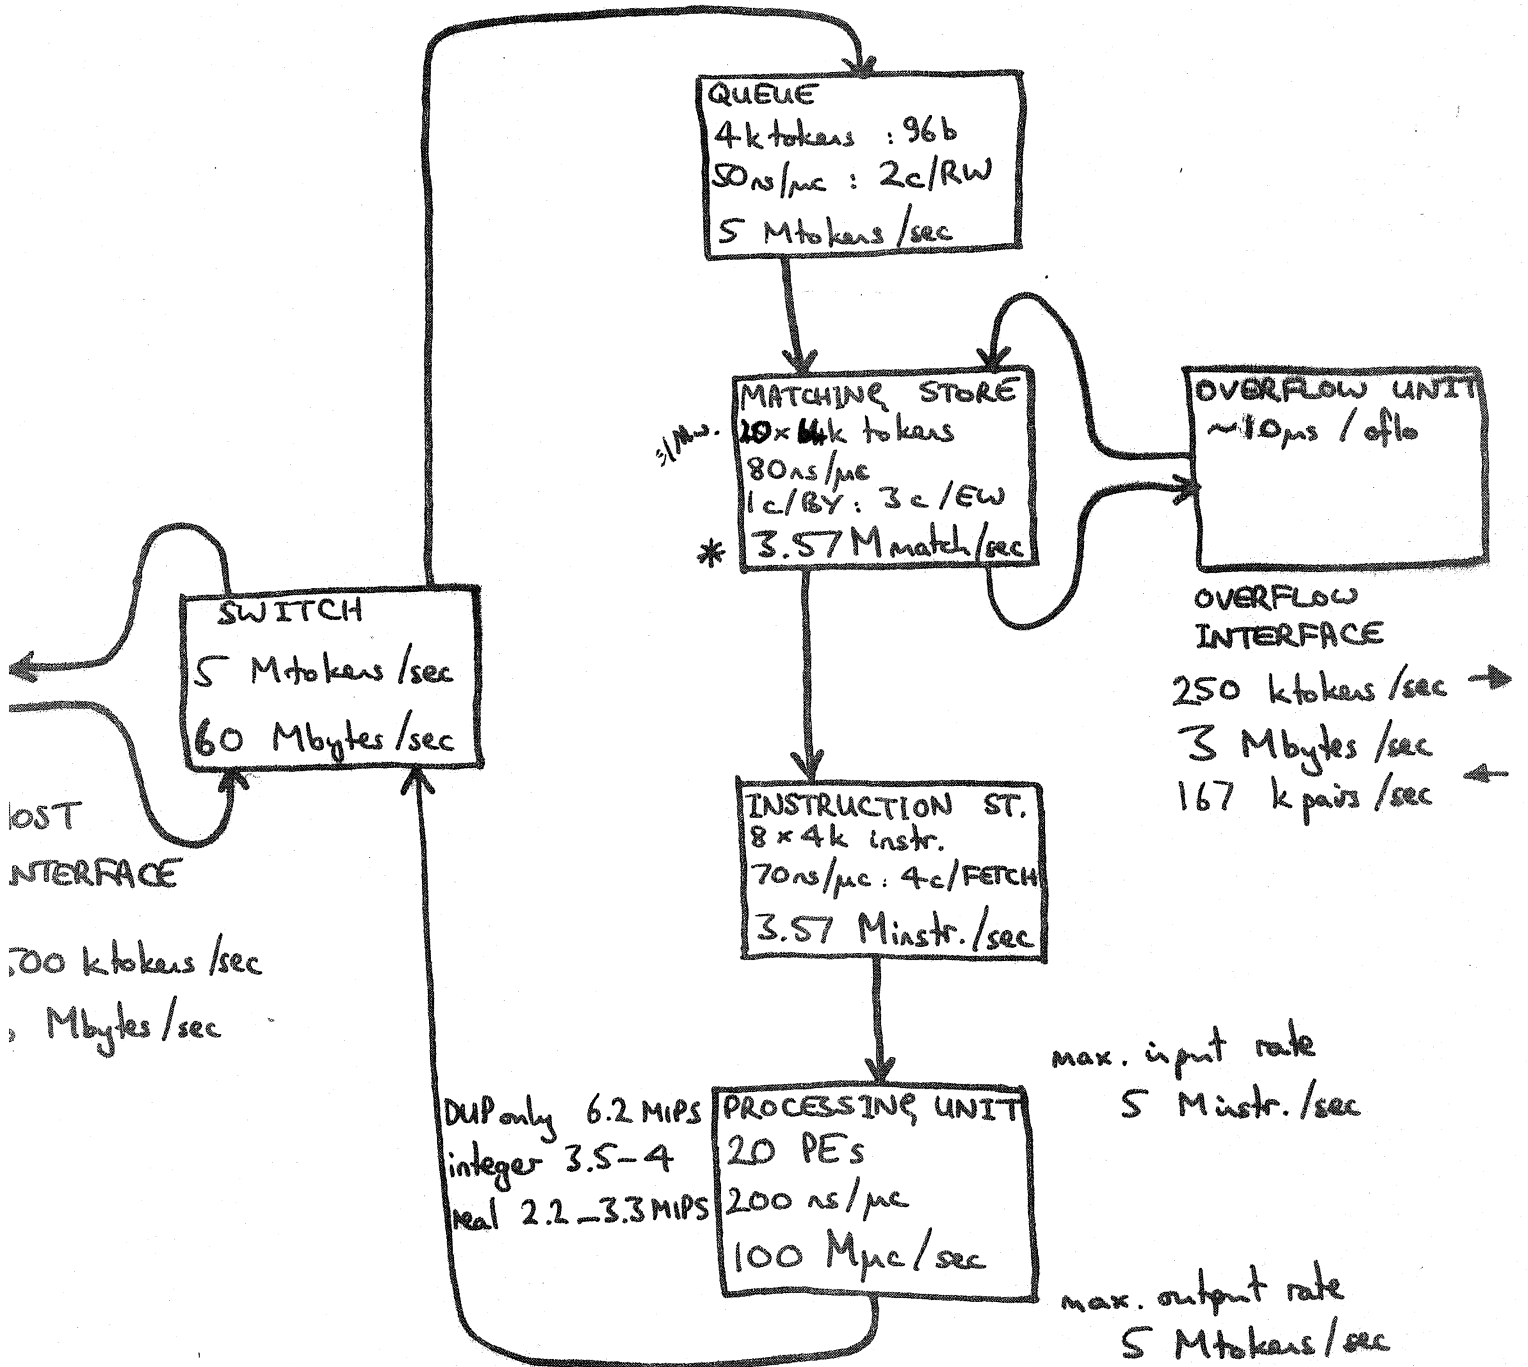 QUEUE
4k tokens : 96b
50ns/μc : 2c/RW
5 Mtokens/sec
MATCHING STORE
20× k tokens
80ns/μc
1c/BY : 3c/EW
* 3.57 M match/sec
OVERFLOW UNIT
~10μs / oflo
OVERFLOW
INTERFACE
250 ktokens/sec →
3 Mbytes/sec
167 k pairs/sec ←
SWITCH
5 Mtokens/sec
60 Mbytes/sec
OST
NTERFACE
500 ktokens/sec
Mbytes/sec
INSTRUCTION ST.
8 × 4k instr.
70ns/μc : 4c/FETCH
3.57 Minstr./sec
max. input rate
5 Minstr./sec
DUP only 6.2 MIPS
integer 3.5-4
real 2.2-3.3 MIPS
PROCESSING UNIT
20 PEs
200 ns/μc
100 Mμc/sec
max. output rate
5 Mtokens/sec